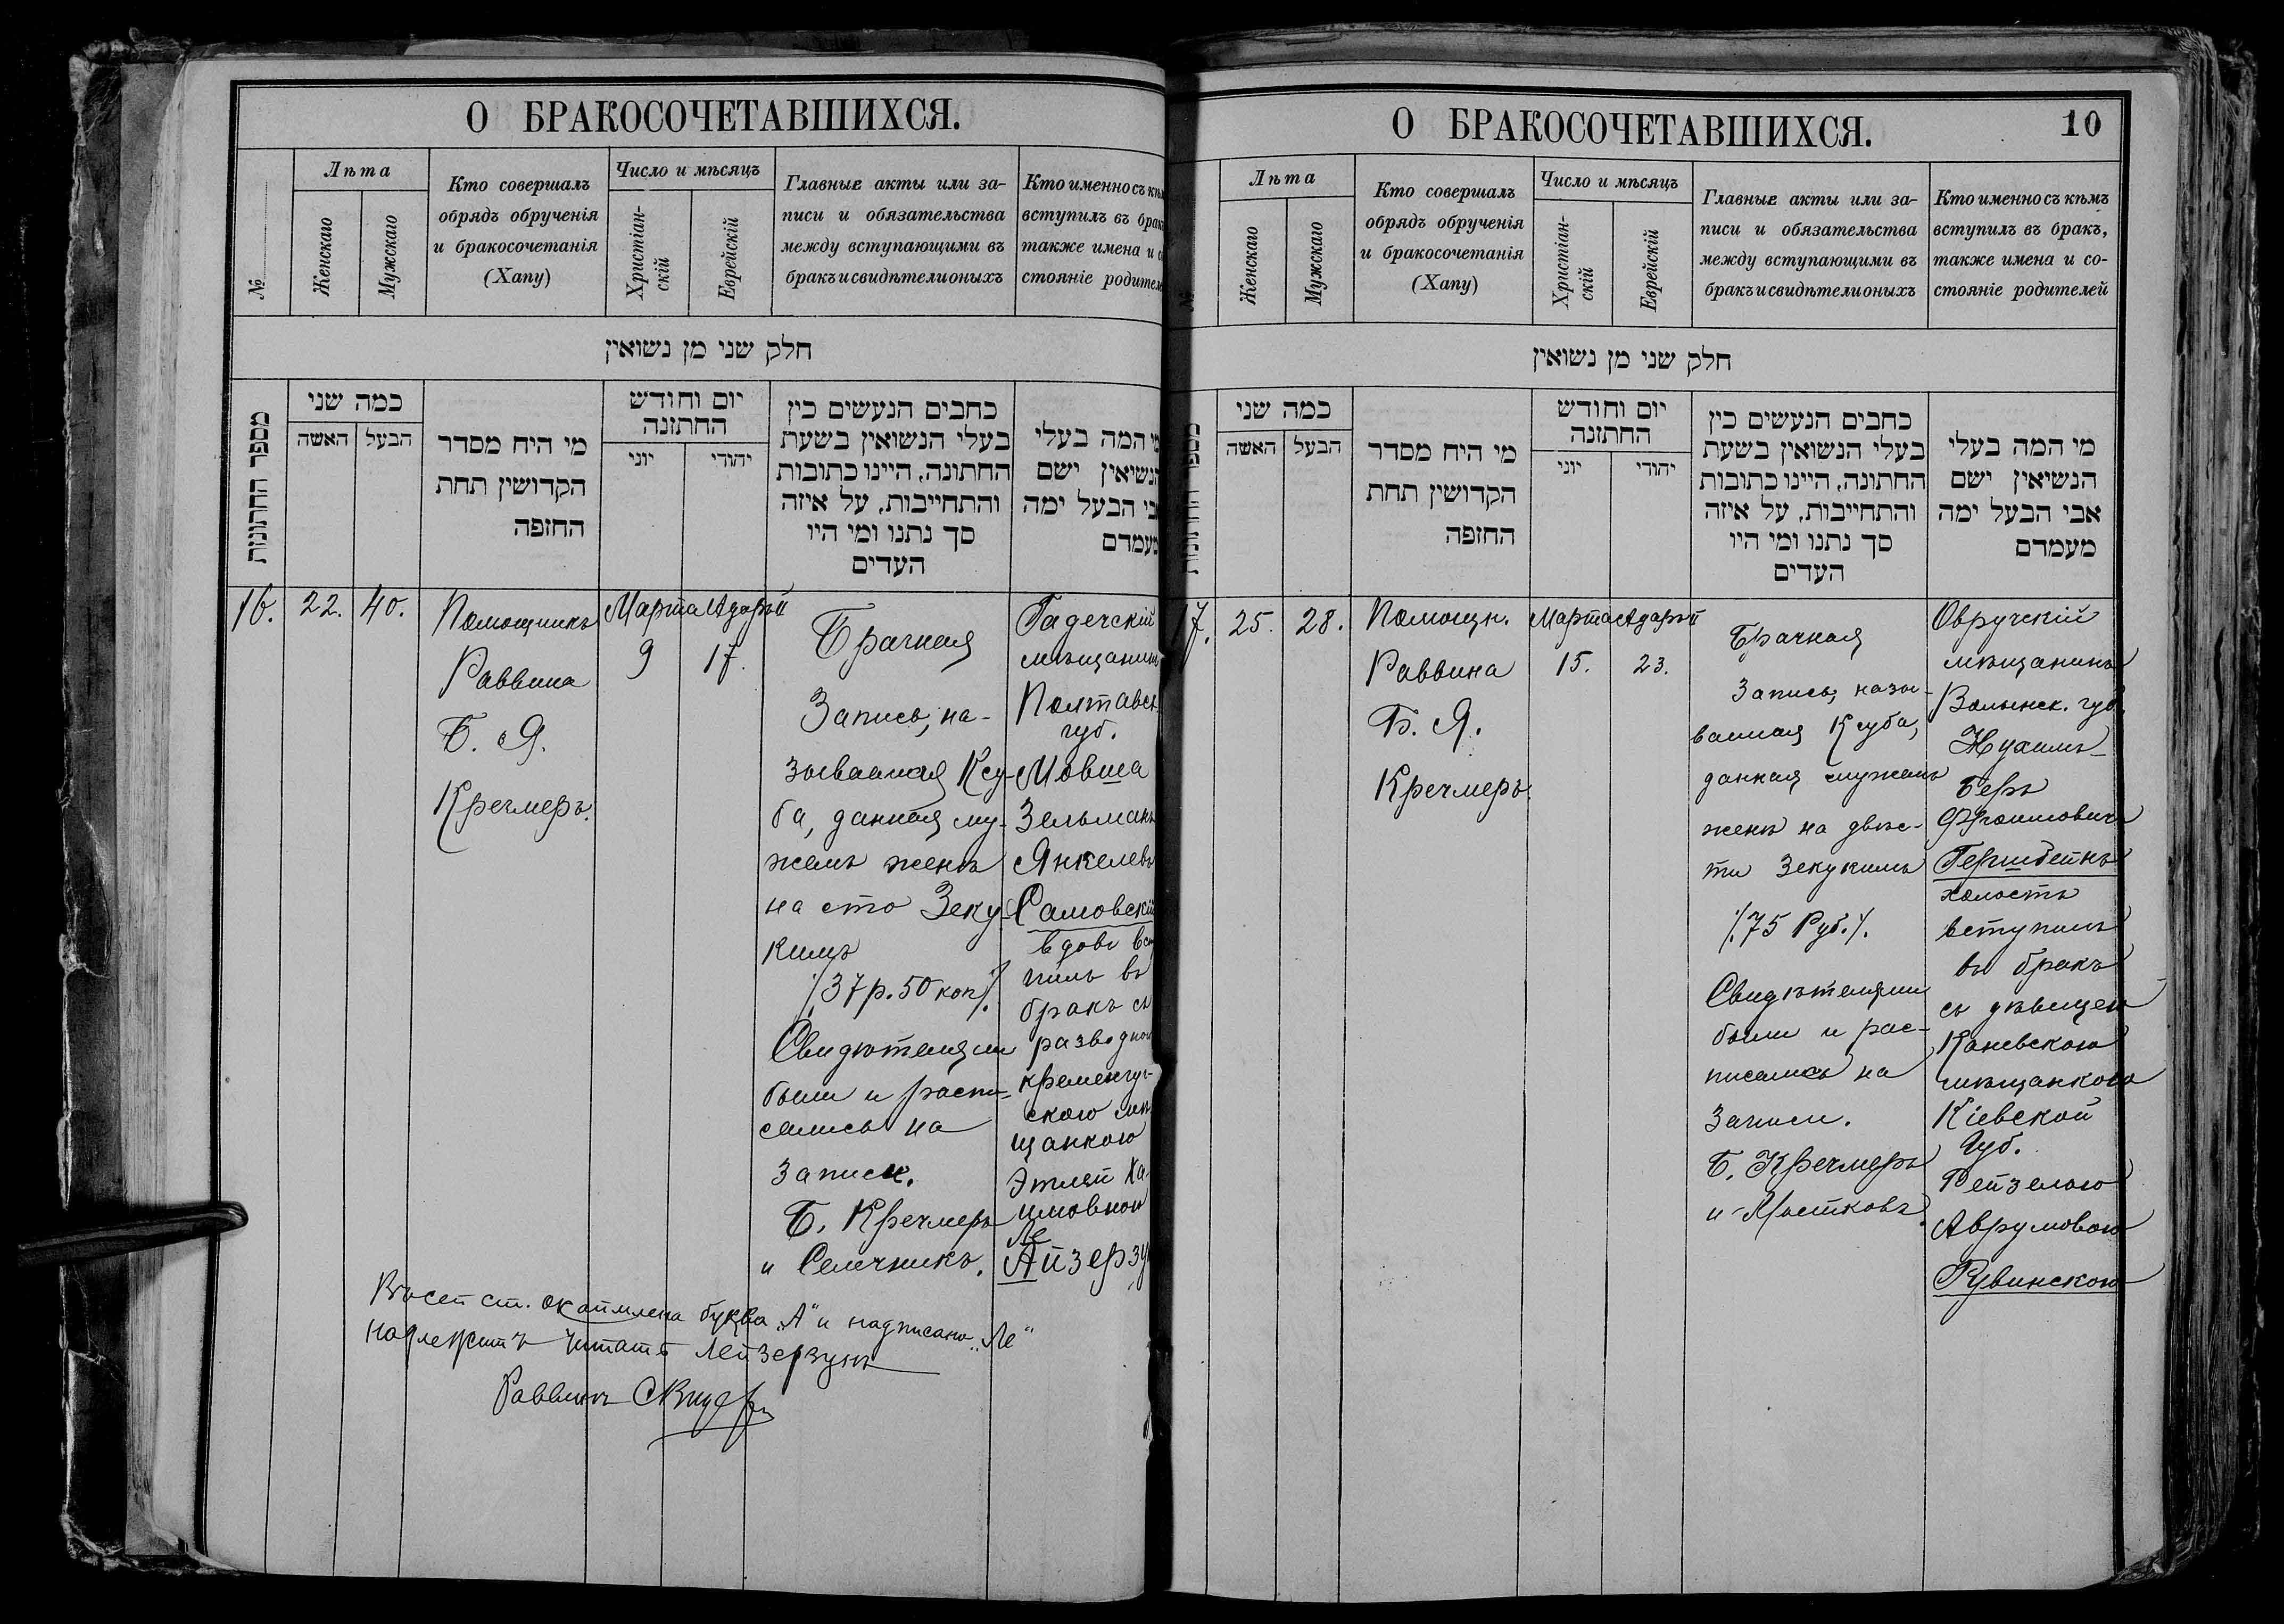 О БРАКОСОЧЕТАВШИХСЯ.
№
Лѣта
Женскаго
Мужскаго
Кто совершалъ
обрядъ обрученія
и бракосочетанія
(Хапу)
Число и мѣсяцъ
Христіан-
скій
Еврейскій
Главные акты или за-
писи и обязательства
между вступающими въ
бракъ и свидѣтели оныхъ
Кто именно съ кѣм
вступилъ въ брак
также имена и с
стояніе родителе
חלק שני מן נשואין
מספר החתונות
כמה שני
האשה
הבעל
מי היח מסדר
הקדושין תחת
החזפה
יום וחודש
החתזנה
יוני
יהודי
כחבים הנעשים כין
בעלי הנשואין בשעת
החתונה, היינו כתובות
והתחייבות, על איזה
סך נתנו ומי היו
העדים
מי המה בעלי
הנשיאין ישם
אבי הבעל ימה
מעמדם
16.
22.
40.
Помощникъ
Раввина
Б. Я.
Кречмеръ.
Марта
9
Адаръ II
17.
Брачная
Запись, на-
зываемая Ксу-
ба, данная му-
жемъ женѣ
на сто Зеку-
кимъ
/37 р. 50 коп/.
Свидѣтелями
были и распи-
сались на
Записи.
Б. Кречмеръ
и Селичникъ.
Гадечскій
мѣщанинъ
Полтавск.
губ.
Мовша
Зельманъ
Янкелевъ
Самовскій
вдовъ всту
пилъ въ
бракъ съ
разводной
кременчуг-
скою мѣ
щанкою
Этлей Ха-
имовной
Ле
Айзерзу
Въ сей ст. окаймлена буква „А" и надписано „Ле"
надлежитъ читать Лейзерзукъ
Раввинъ
О БРАКОСОЧЕТАВШИХСЯ.
10
Лѣта
Женскаго
Мужскаго
Кто совершалъ
обрядъ обрученія
и бракосочетанія
(Хапу)
Число и мѣсяцъ
Христіан-
скій
Еврейскій
Главные акты или за-
писи и обязательства
между вступающими въ
бракъ и свидѣтели оныхъ
Кто именно съ кѣмъ
вступилъ въ бракъ,
также имена и со-
стояніе родителей
חלק שני מן נשואין
כמה שני
האשה
הבעל
מי היח מסדר
הקדושין תחת
החזפה
יום וחודש
החתזנה
יוני
יהודי
כחבים הנעשים כין
בעלי הנשואין בשעת
החתונה, היינו כתובות
והתחייבות, על איזה
סך נתנו ומי היו
העדים
מי המה בעלי
הנשיאין ישם
אבי הבעל ימה
מעמדם
17.
25.
28.
Помощн.
Раввина
Б. Я.
Кречмеръ.
Марта
15.
Адаръ II
23.
Брачная
Запись, назы-
ваемая Ксуба,
данная мужемъ
женѣ на двѣс-
ти Зекукимъ
/.75 Руб./.
Свидѣтелями
были и рас-
писались на
Записи.
Б. Кречмеръ
и Мостковъ.
Овручскій
мѣщанинъ
Волынск. губ.
Нухимъ-
Беръ
Фроимовичъ
Герштейнъ
холостъ
вступилъ
въ бракъ
съ дѣвицею
Каневскою
мѣщанкою
Кіевской
Губ.
Рейзелою
Аврумовою
Рувинскою